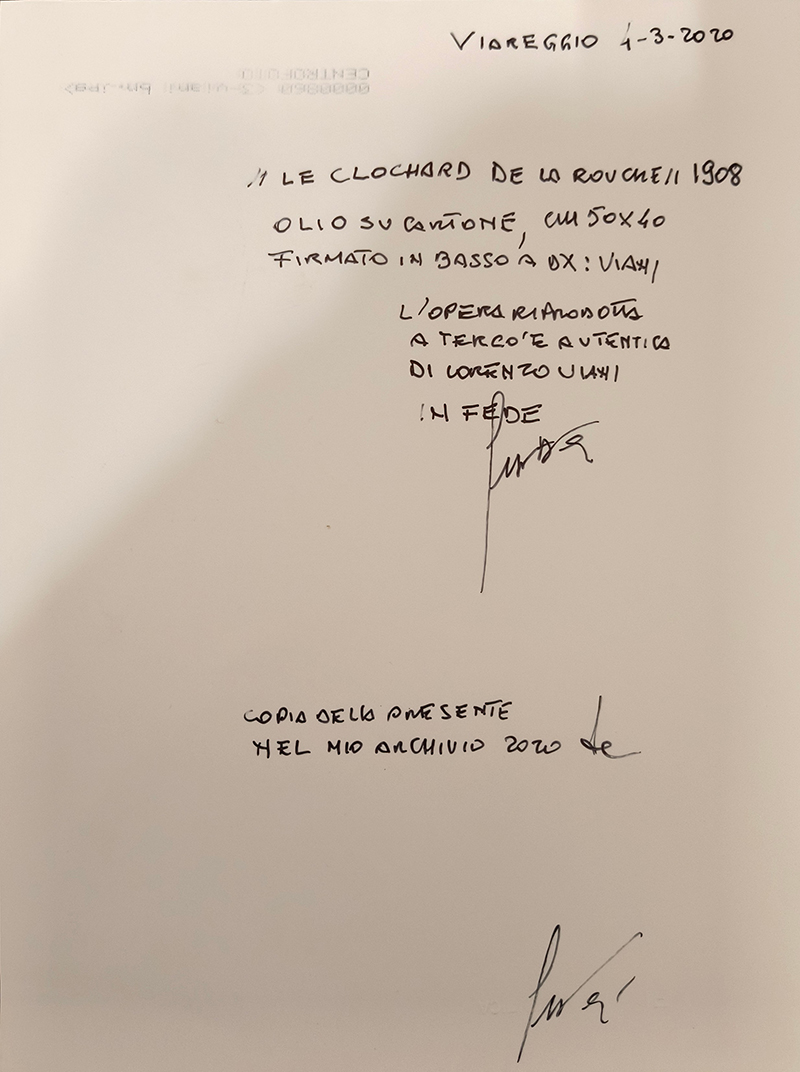 VIAREGGIO 4-3-2020
CENTROFOTO
0000860
"LE CLOCHARD DE LA ROUCHE" 1908
OLIO SU CARTONE, CM 50X40
FIRMATO IN BASSO A DX: VIANI
L'OPERA RIPRODOTTA
A TERGO È AUTENTICA
DI LORENZO VIANI
IN FEDE
COPIA DELLA PRESENTE
NEL MIO ARCHIVIO 2020